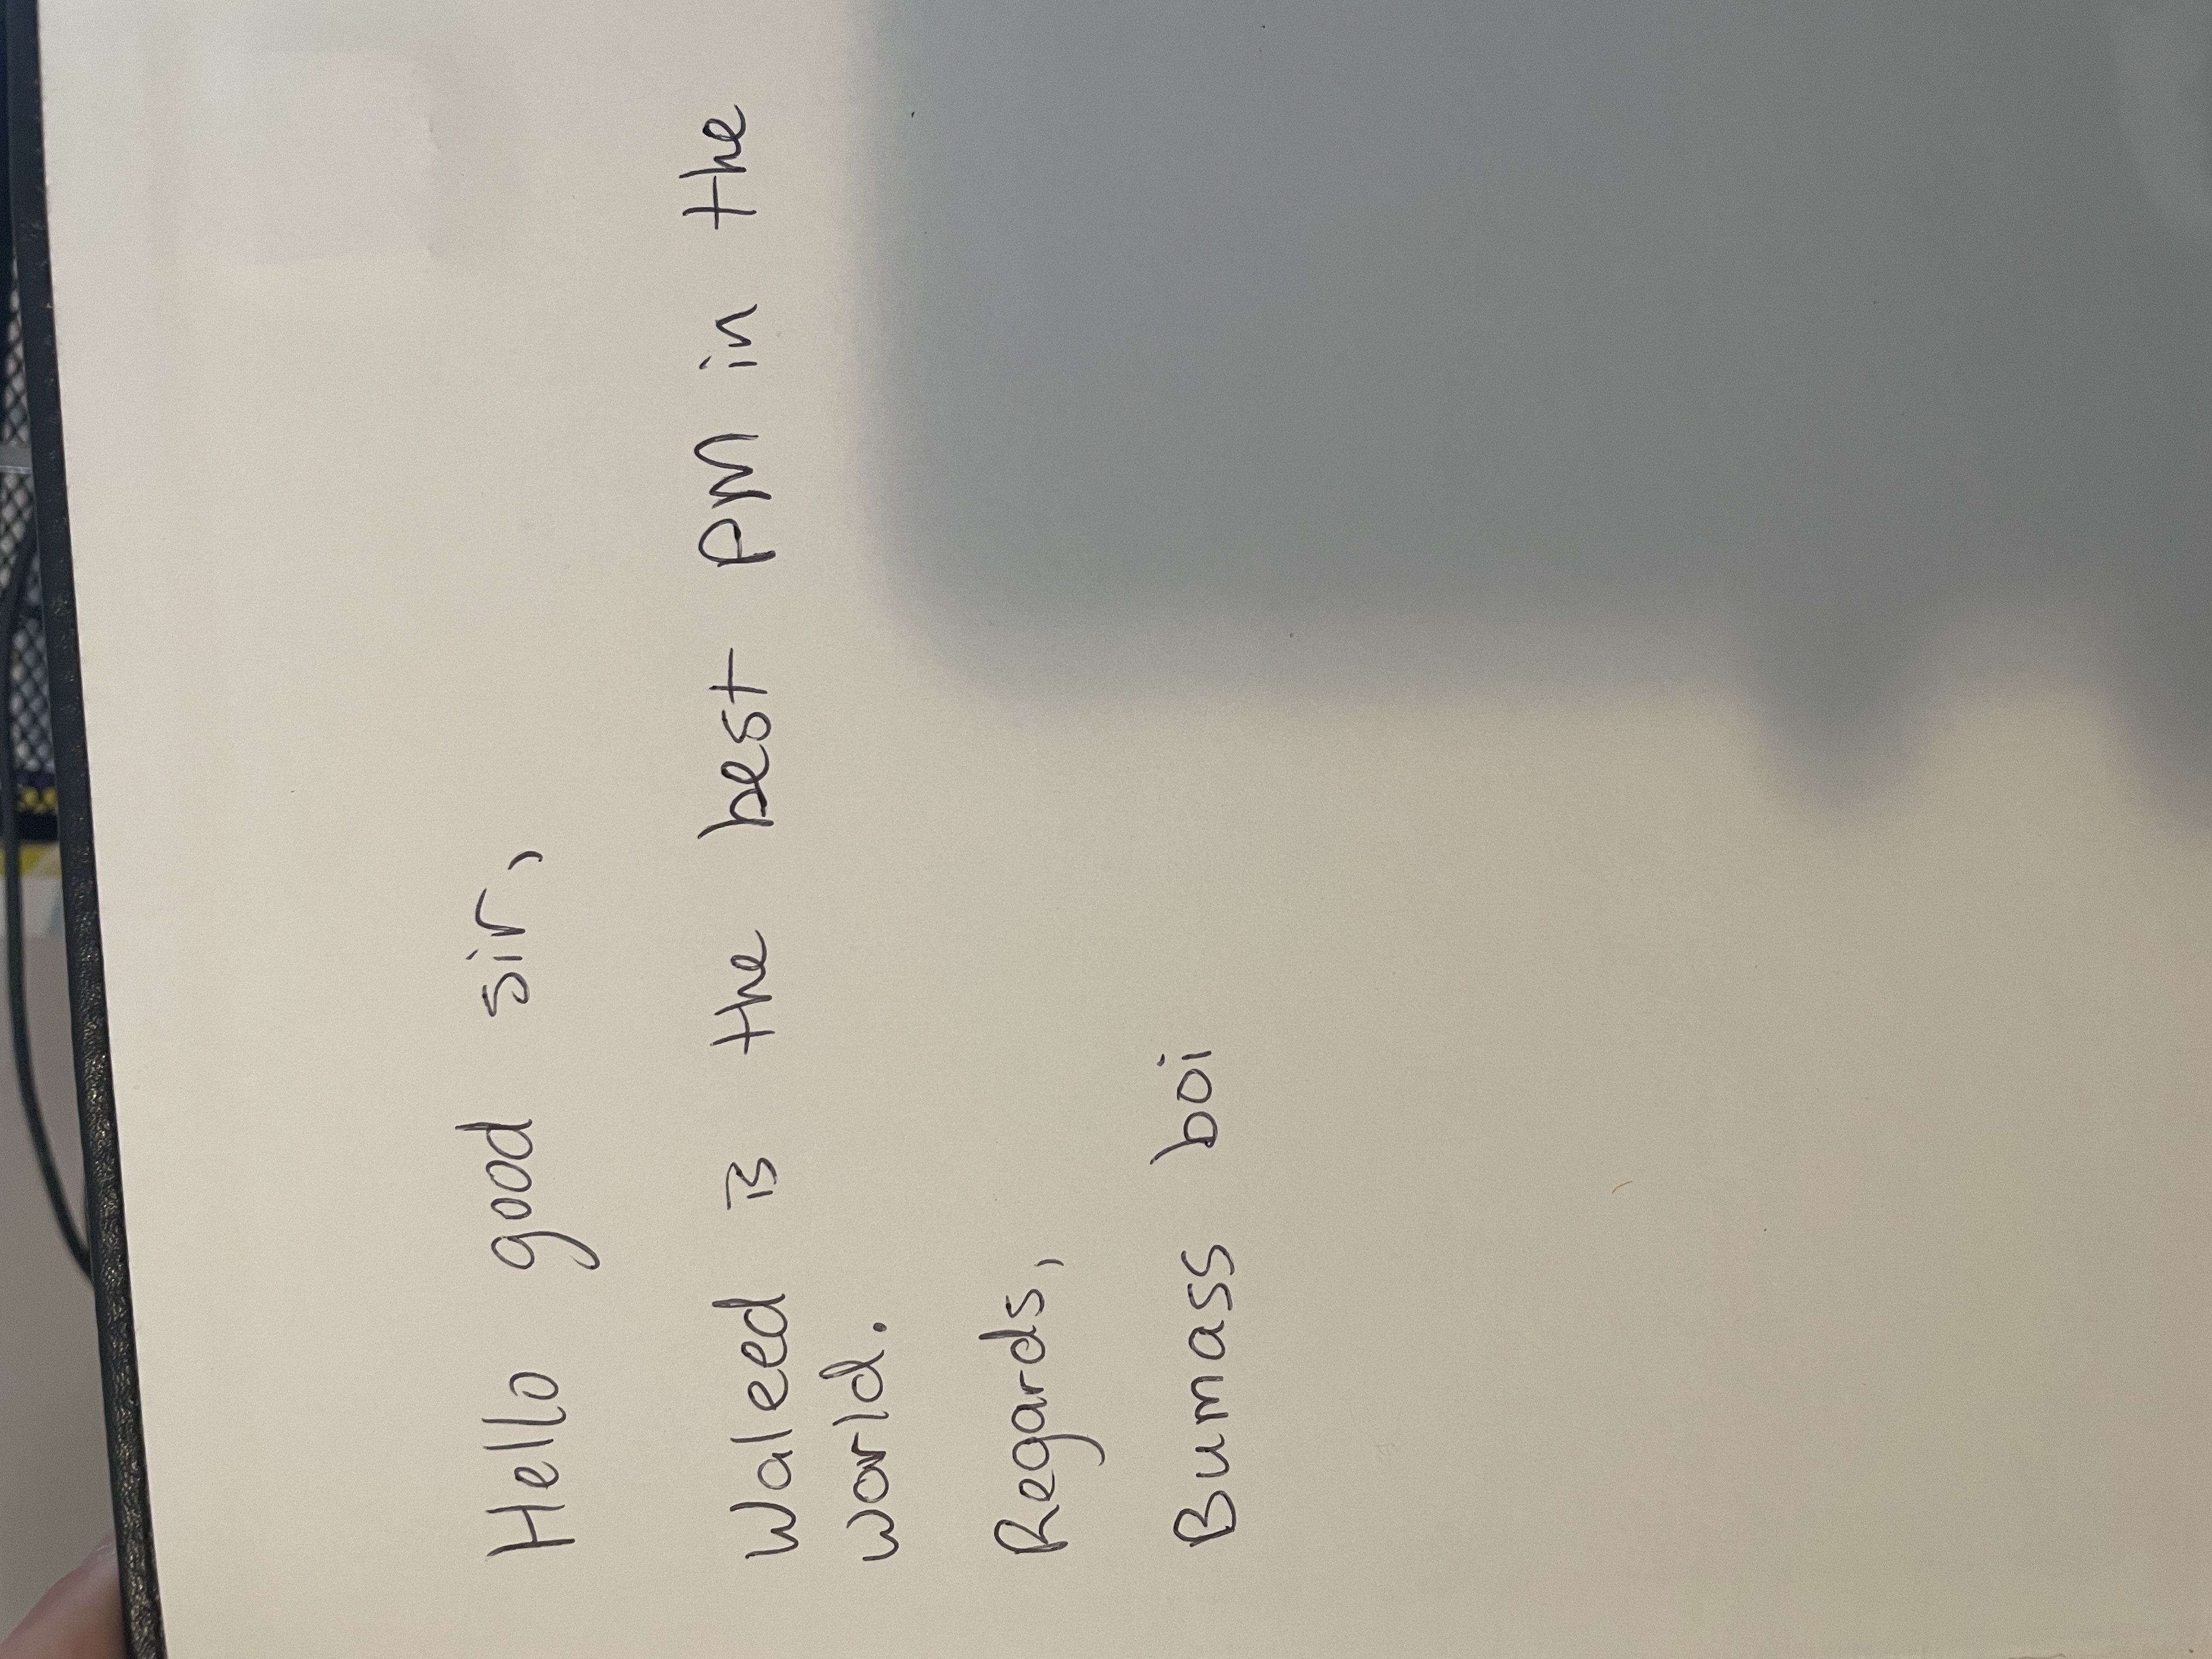 Hello good sir,
Waleed is the best PM in the
world.
Regards,
Bumass boi